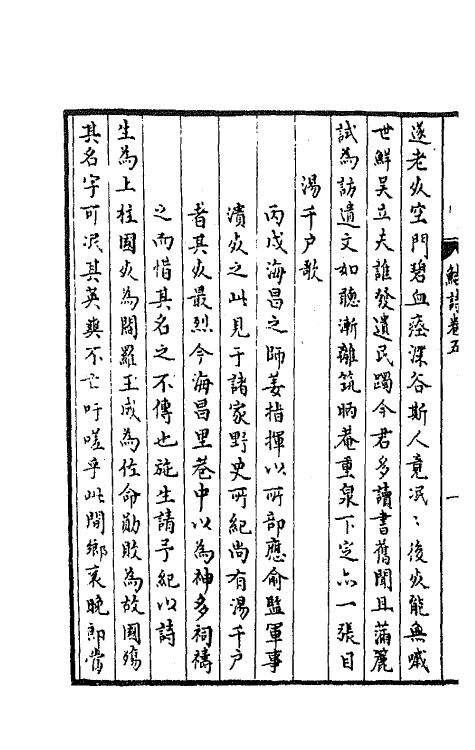 鮚詩卷五
一
遂老死空門碧血瘞深谷斯人竟泯〻後死能無哦
世鮮吳立夫誰發遺民躅今君多讀書舊聞且滿簏
試為訪遺文如聽漸離筑昞菴重泉下定亦一張目
湯千户歌
丙戌海昌之師姜指揮以所部應俞監軍事
潰死之此見于諸家野史所紀尚有湯千户
者其死最烈今海昌里巷中以為神多祠禱
之而惜其名之不傳也施生請予紀以詩
生為上柱國死為閻羅王成為佐命勛敗為故國殤
其名字可泯其英爽不亡吁嗟乎此間鄉袞晚郎當